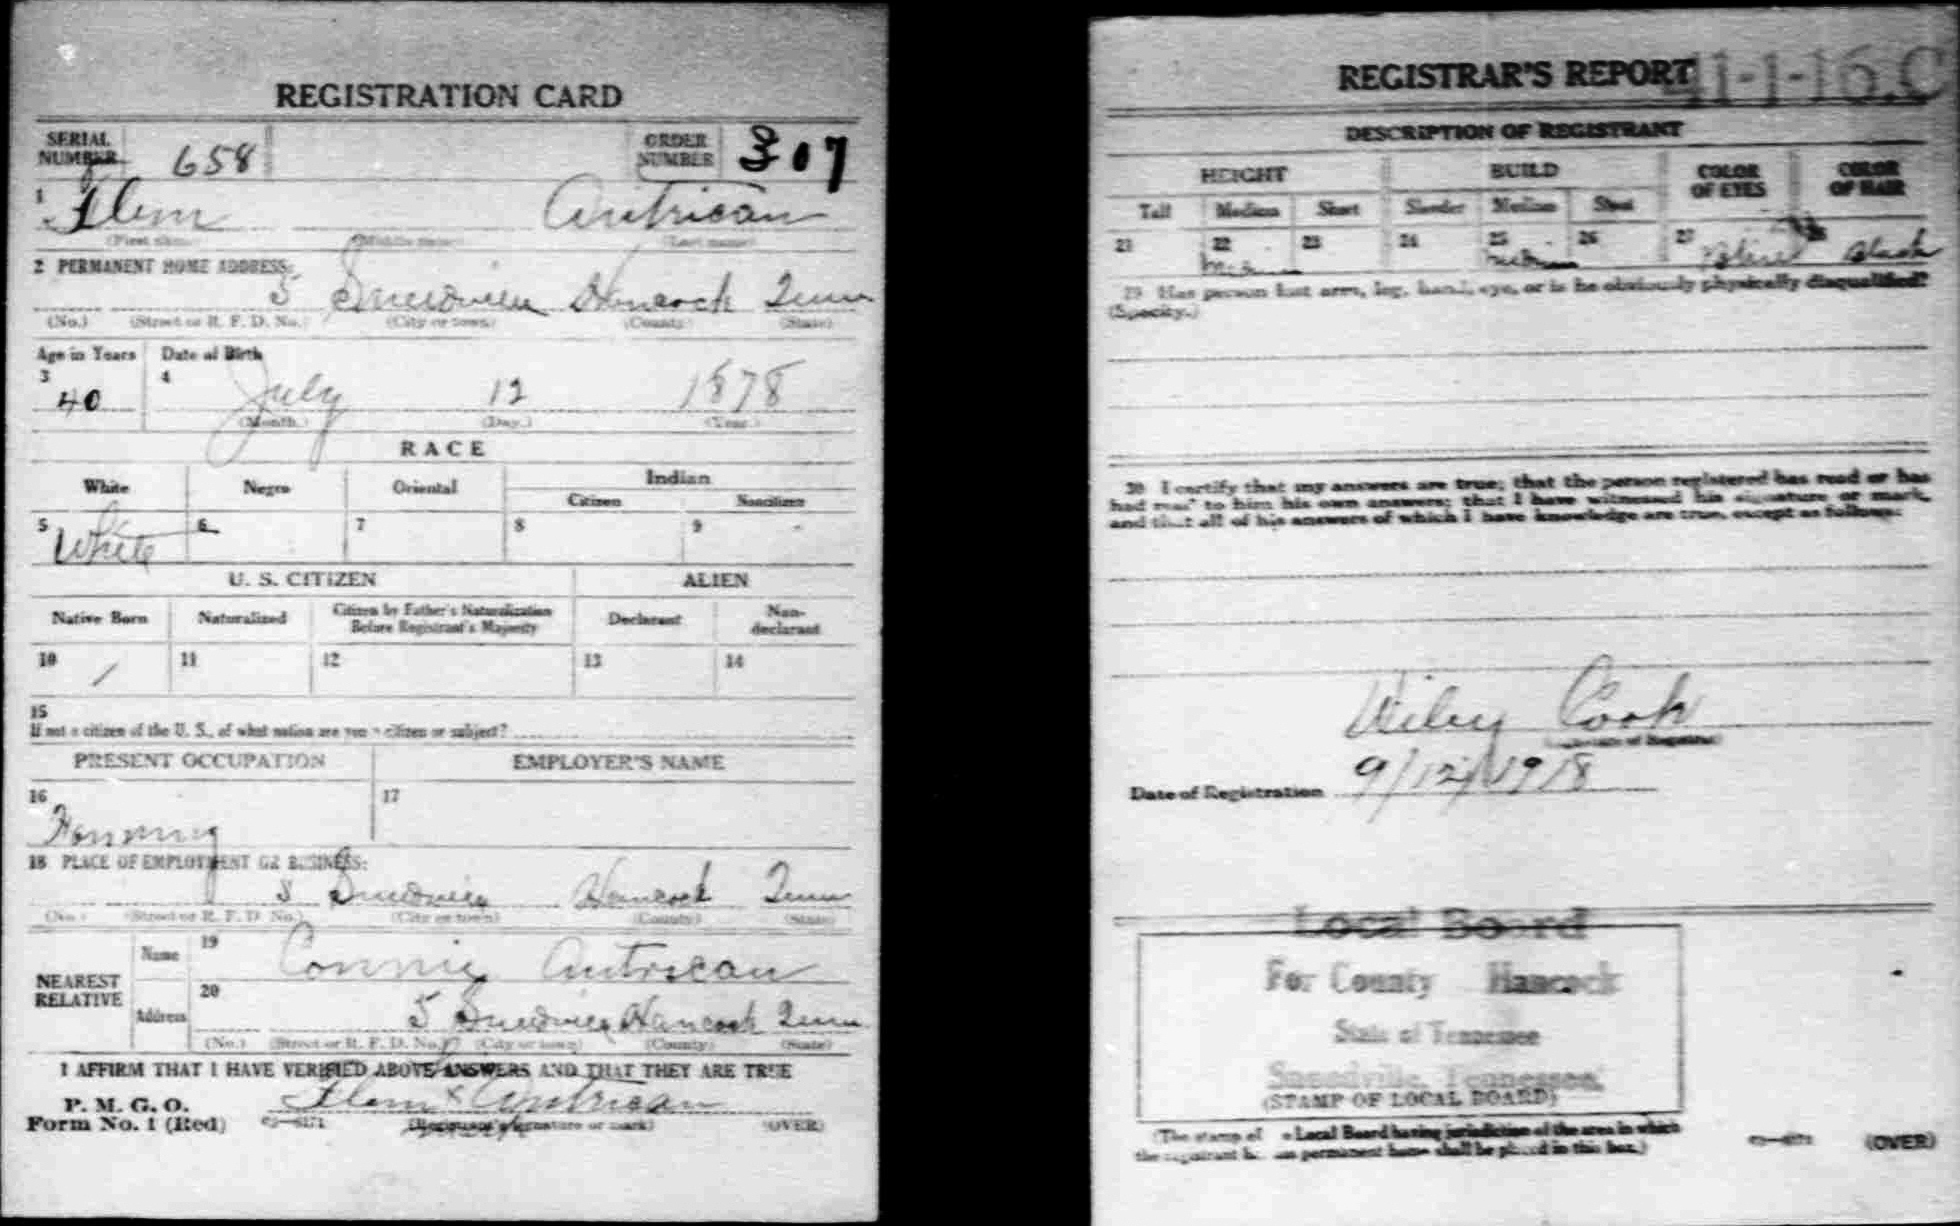 REGISTRATION CARD
SERIAL NUMBER 658 ORDER NUMBER 307
1 Flem Antrican
(First name) (Middle name) (Last name)
2 PERMANENT HOME ADDRESS:
5 Sneedville Hancock Tenn
(No.) (Street or R. F. D. No.) (City or town) (County) (State)
Age in Years Date of Birth
3 40 4 July 12 1878
(Month.) (Day.) (Year.)
RACE
White Negro Oriental Indian
Citizen Noncitizen
5 White 6 7 8 9
U. S. CITIZEN ALIEN
Native Born Naturalized Citizen by Father's Naturalization Before Registrant's Majority Declarant Non-declarant
10 / 11 12 13 14
15
If not a citizen of the U. S., of what nation are you a citizen or subject?
PRESENT OCCUPATION EMPLOYER'S NAME
16 Farming 17
18 PLACE OF EMPLOYMENT OR BUSINESS:
5 Sneedville Hancock Tenn
(No.) (Street or R. F. D. No.) (City or town) (County) (State)
NEAREST RELATIVE
Name 19 Connie Antrican
Address 20 5 Sneedville Hancock Tenn
(No.) (Street or R. F. D. No.) (City or town) (County) (State)
I AFFIRM THAT I HAVE VERIFIED ABOVE ANSWERS AND THAT THEY ARE TRUE
P. M. G. O.
Form No. 1 (Red) Flem x Antrican
(Registrant's signature or mark) (OVER)
REGISTRAR'S REPORT 41-1-16.C
DESCRIPTION OF REGISTRANT
HEIGHT BUILD COLOR OF EYES COLOR OF HAIR
Tall Medium Short Slender Medium Stout
21 22 23 24 25 26 27 Black
29 Has person lost arm, leg, hand, eye, or is he obviously physically disqualified?
(Specify.)
30 I certify that my answers are true; that the person registered has read or has
had read to him his own answers; that I have witnessed his signature or mark,
and that all of his answers of which I have knowledge are true, except as follows:
Wiley Cook
(Signature of Registrar)
Date of Registration 9/12/1918
Local Board
For County Hancock
State of Tennessee
Sneedville, Tennessee.
(STAMP OF LOCAL BOARD)
(The stamp of the Local Board having jurisdiction of the area in which
the registrant has his permanent home shall be placed in this box.)
(OVER)